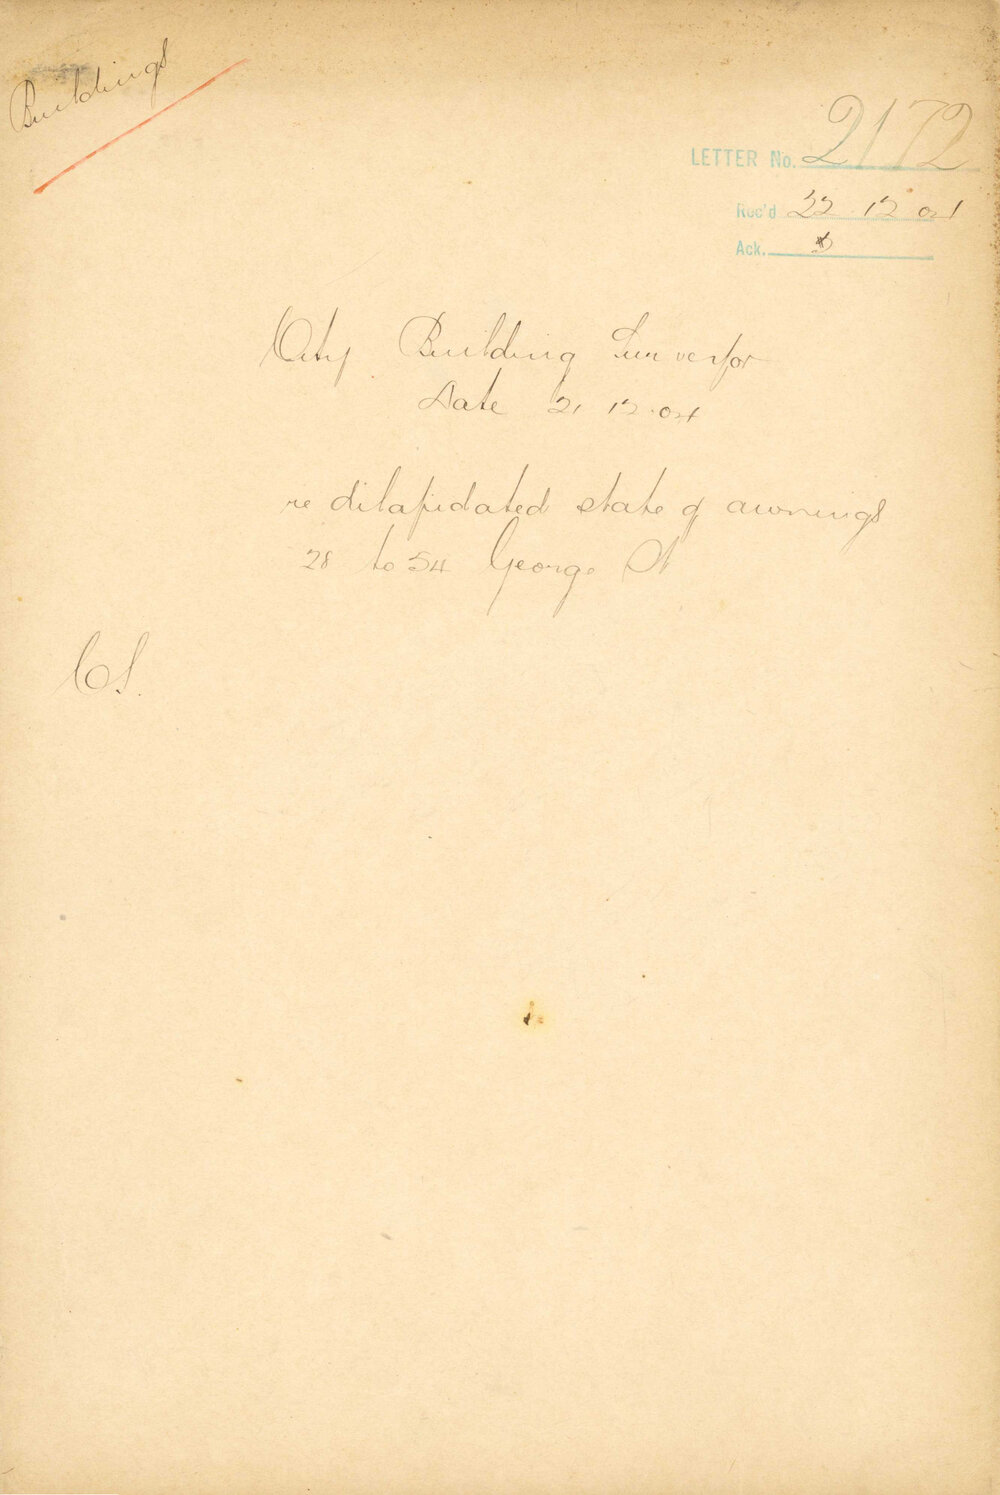 Buildings
LETTER No. 2172
Rec'd 22 12 04
Ack.
City Building Surveyor
Date 21 12.04
re dilapidated state of awnings
28 to 54 George St
CS.